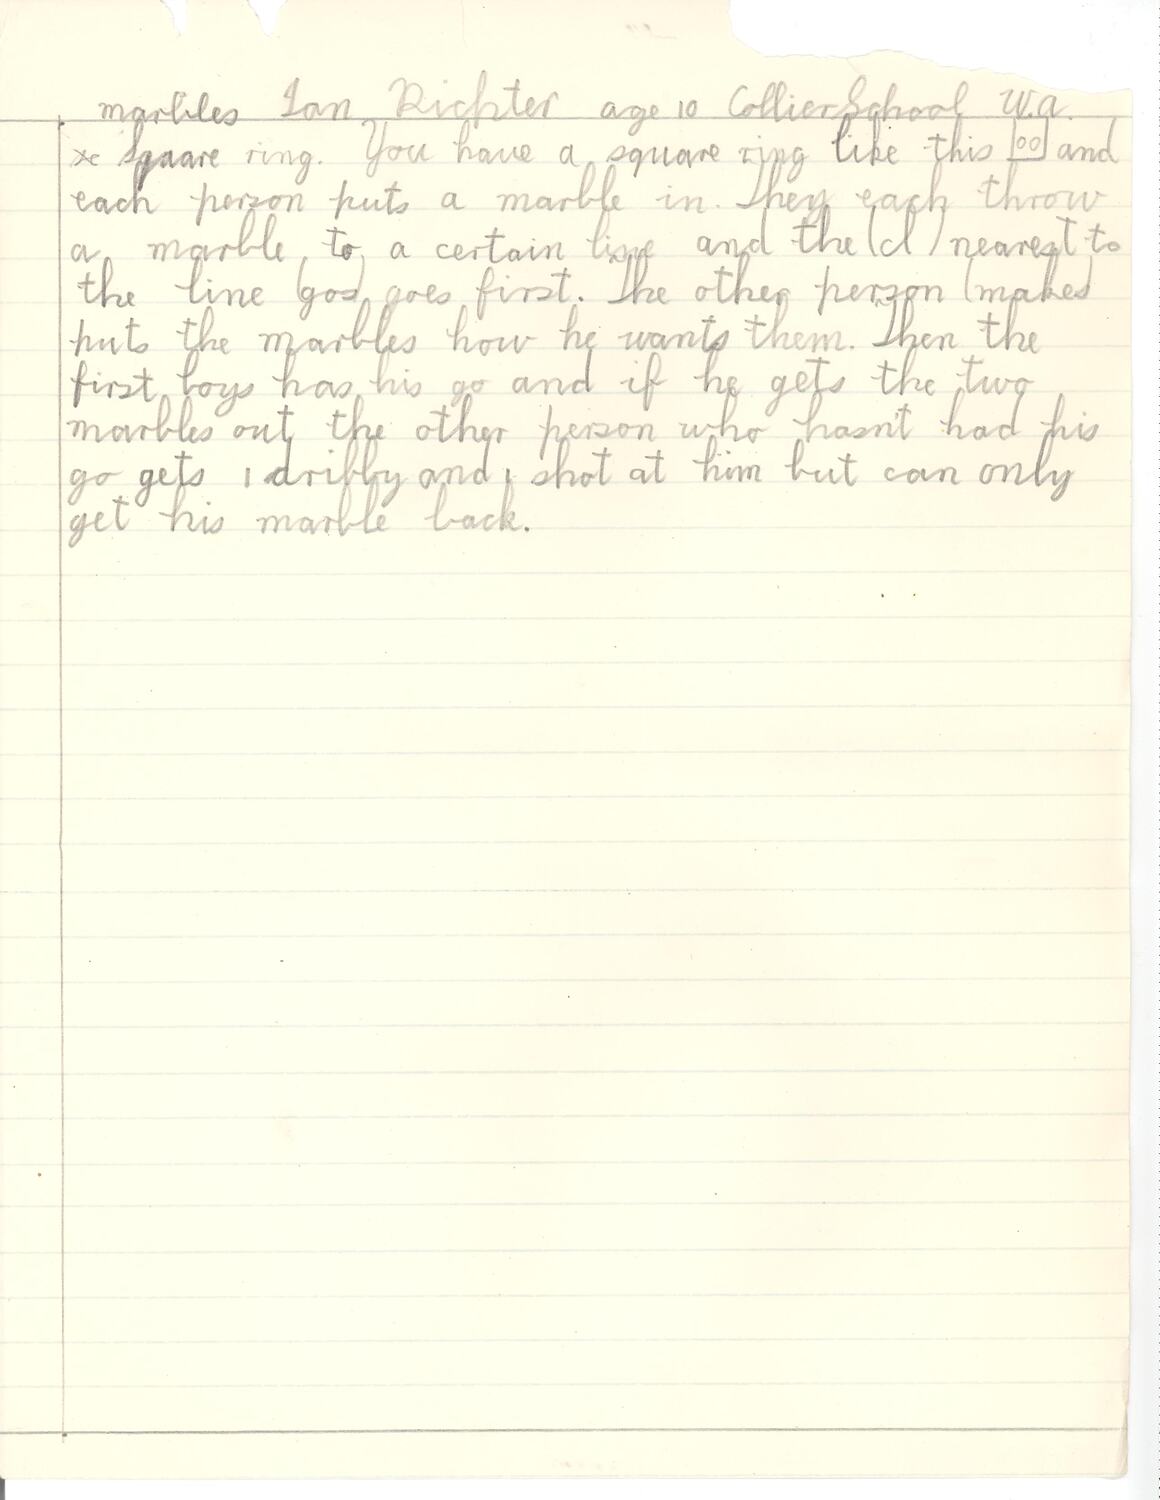 marbles Ian Richter age 10 Collier School W.A.
Square ring. You have a square ring like this and
each person puts a marble in. They each throw
a marble to a certain line and the (cl) nearest to
the line (gos) goes first. The other person (makes)
puts the marbles how he wants them. Then the
first boys has his go and if he gets the two
marbles out the other person who hasn't had his
go gets 1 dribby and 1 shot at him but can only
get his marble back.